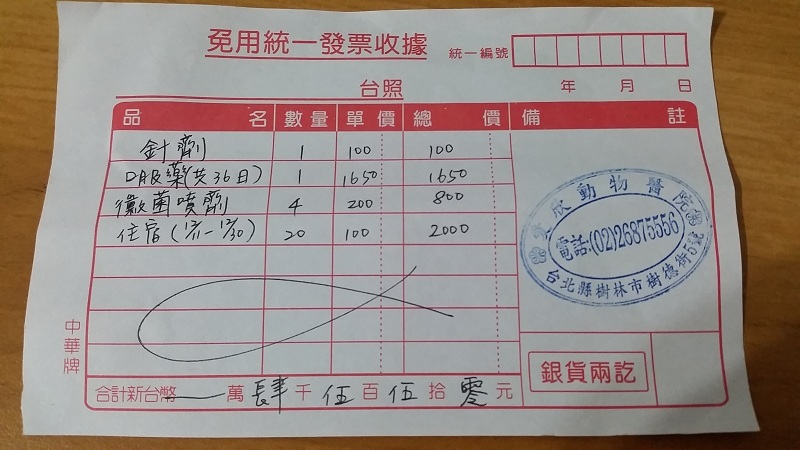 免用統一發票收據
統一編號
台照
年 月 日
品 名 數量 單 價 總 價 備 註
針劑 1 100 100
口服藥(共36日) 1 1650 1650
黴菌噴劑 4 200 800
住宿 20 100 2000
欣動物醫院
電話:(02)26875556
台北縣樹林市樹德街5號
銀貨兩訖
合計新台幣 萬 肆 千 伍 百 伍 拾 零 元
中華牌